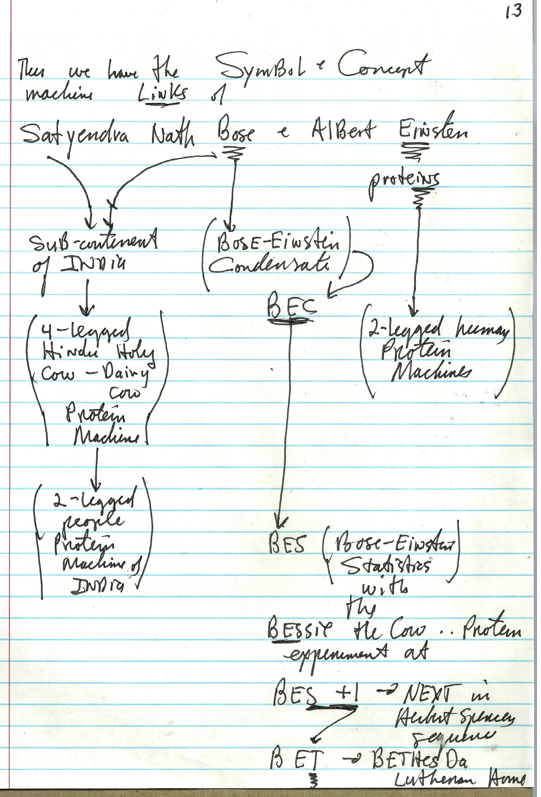 13
Thus we have the Symbol & Concept
machine Links of
Satyendra Nath Bose & Albert Einsten
proteins
Sub-contenent
of INDIA
(Bose-Einstein
Condensate)
BEC
(4-legged
Hindu Holy
Cow - Dairy
Cow
Protein
Machine)
(2-legged human
Protein
Machines)
(2-legged
people
Protein
Machine of
INDIA)
BES (Bose-Einstein
Statistics)
with
the
BESSIE the Cow .. Protein
experiment at
BES +1 → NEXT in
Herbert Spencer
sequence
BET → BETHesDa
Lutheran Home